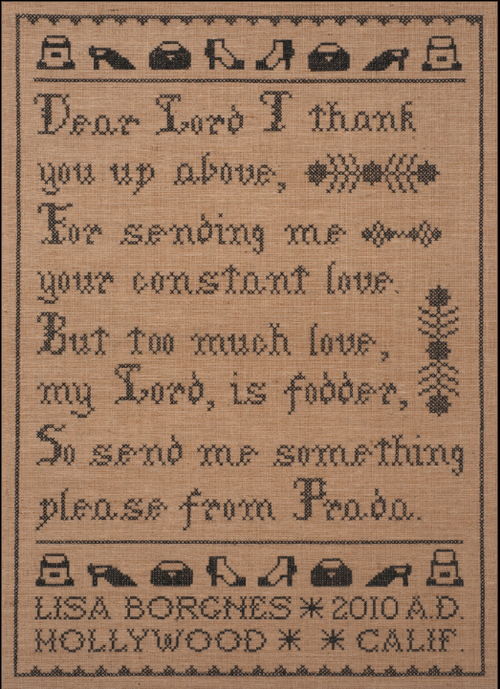 Dear Lord I thank
you up above,
For sending me
your constant love.
But too much love,
my Lord, is fodder,
So send me something
please from Prada.
LISA BORGNES * 2010 A.D.
HOLLYWOOD * * CALIF.